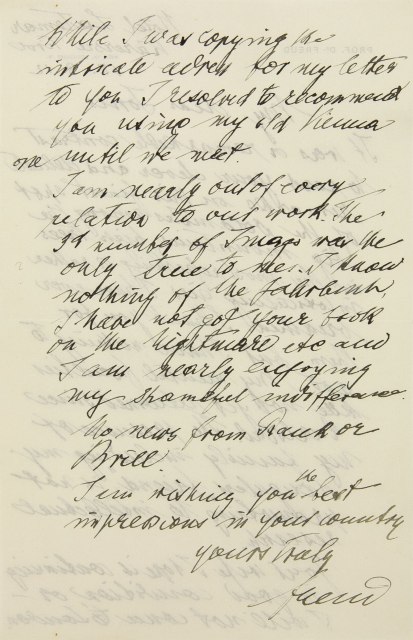 While I was copying the
intricate adress for my letter
to you I resolved to recommend
you using my old Vienna
one until we meet
I am nearly out of every
relation to our work. The
number of Imago was the
only true to me. I know
nothing of the Jahrbuch,
I have not got your book
on the Nightmare etc and
I am nearly enjoying
my shameful indifference.
No news from Rank or
Brill.
I am wishing you the best
impressions in your country
yours truly
Freud